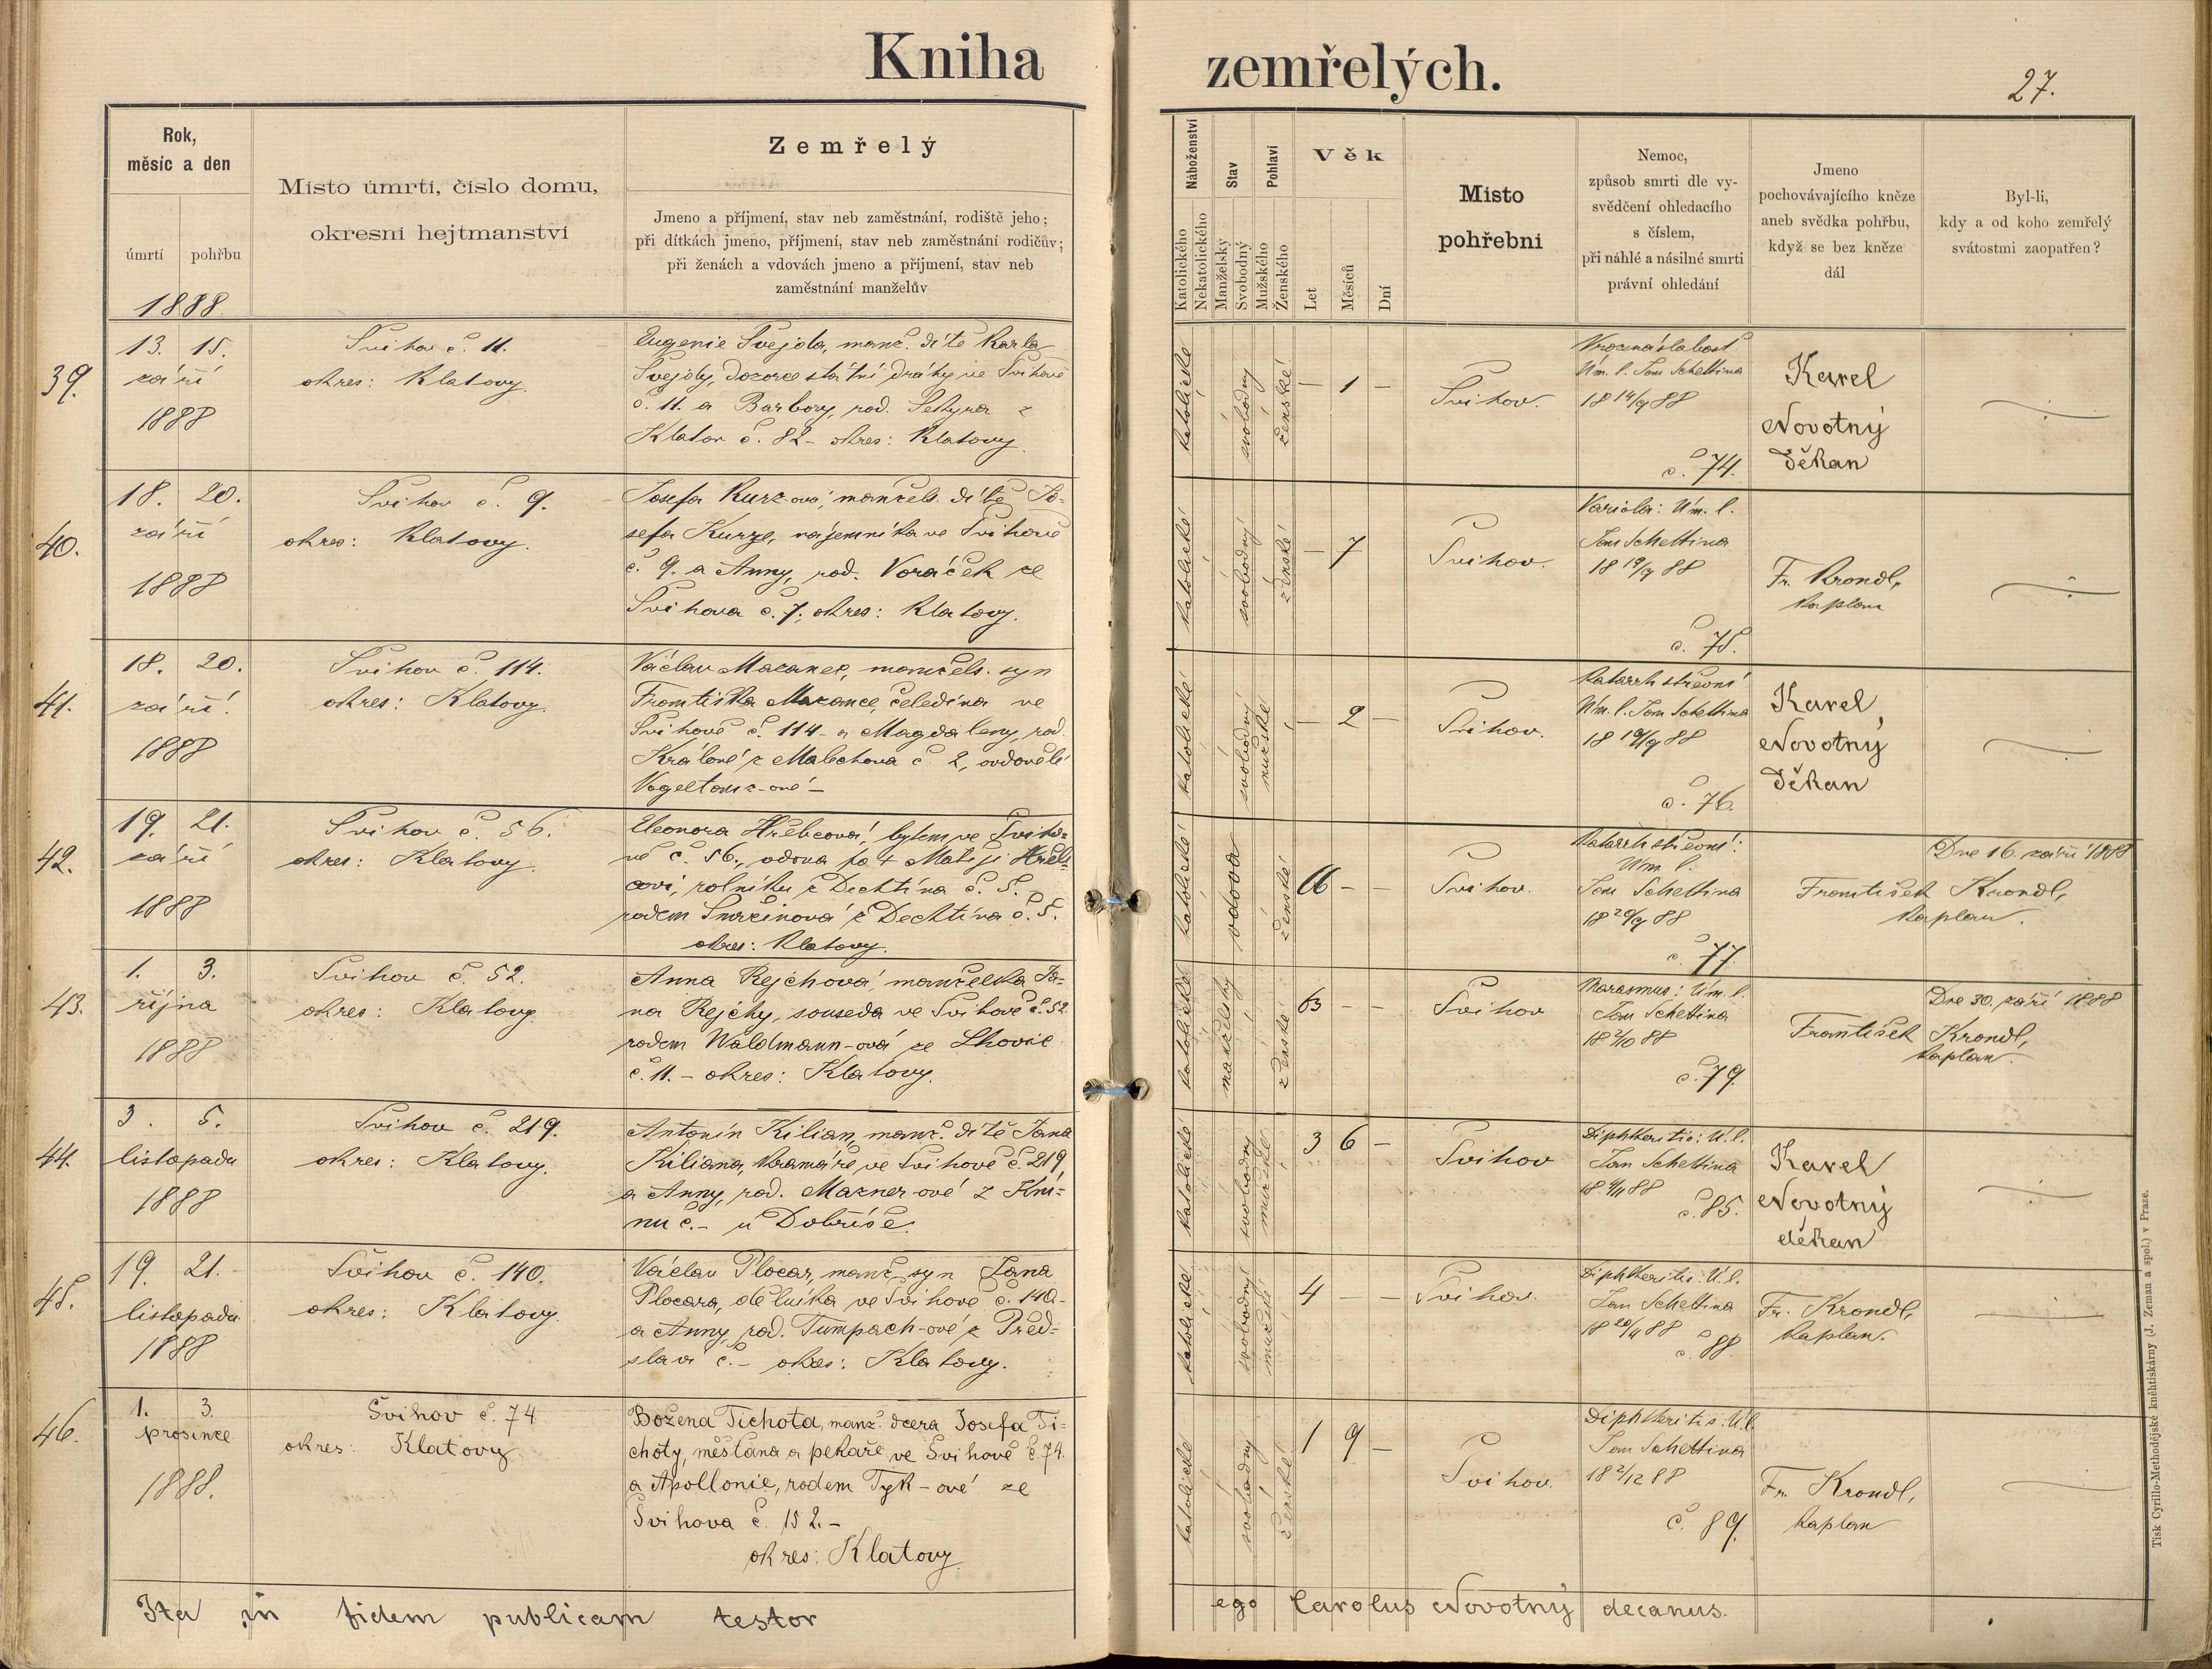 Kniha zemřelých.
27.
Rok,
měsíc a den
úmrtí
pohřbu
1888
Místo úmrtí, číslo domu,
okresní hejtmanství
Zemřelý
Jmeno a příjmení, stav neb zaměstnání, rodiště jeho;
při dítkách jmeno, příjmení, stav neb zaměstnání rodičův;
při ženách a vdovách jmeno a příjmení, stav neb
zaměstnání manželův
Náboženství
Katolického
Nekatolického
Stav
Manželský
Svobodný
Pohlaví
Mužského
Ženského
Věk
Let
Měsíců
Dní
Místo
pohřební
Nemoc,
způsob smrti dle vy-
svědčení ohledacího
s číslem,
při náhlé a násilné smrti
právní ohledání
Jmeno
pochovávajícího kněze
aneb svědka pohřbu,
když se bez kněze
dál
Byl-li,
kdy a od koho zemřelý
svátostmi zaopatřen?
39.
13. 15.
září
1888
Švihov č. 11.
okres: Klatovy.
Eugenie Švejda, manž. dítě Karla
Švejdy, dozorce státní dráhy ve Švihově
č. 11. a Barbory, rod. z
Klatov č. 82 – okres: Klatovy.
katolické
svobodný
ženské
– 1 –
Švihov.
Vrozená slabost
Úm. l. Jan Schettina
18 14/9 88
č. 74.
Karel
Novotný
děkan
40.
18. 20.
září
1888
Švihov č. 9.
okres: Klatovy.
Josefa Kurz-ová, manžels. dítě Jo-
sefa Kurze, nájemníka ve Švihově
č. 9. a Anny, rod. Voráček ze
Švihova č. 7; okres: Klatovy.
katolické
svobodný
ženské
– 7
Švihov.
Variola: Úm. l.
Jan Schettina
18 19/9 88
č. 75.
Fr. Krondl,
kaplan
41.
18. 20.
září.
1888
Švihov č. 114.
okres: Klatovy.
Václav Mazanec, manžels. syn
Františka Mazance, čeledína ve
Švihově č. 114 – a Magdaleny, rod.
Králové z Malechova č. 2, ovdovělé
katolické
svobodný
mužské
– 2 –
Švihov.
Katarrh střevní
Úm. l. Jan Schettina
18 19/9 88
č. 76.
Karel
Novotný
děkan
42.
19. 21.
září
1888
Švihov č. 56.
okres: Klatovy.
Eleonora Hřebcová, bytem ve Šviho-
vě č. 56., vdova po † Matěji Hřeb-
covi, rolníku z Dechtína č. 5.
rodem z Dechtína č. 5.
okres: Klatovy.
katolické
vdova
ženské
66 – –
Švihov.
Katarrh střevní:
Úm. l.
Jan Schettina
18 20/9 88
č. 77
Dne 16. září 1888
František Krondl,
kaplan.
43.
1. 3.
října
1888
Švihov č. 52.
okres: Klatovy.
Anna Rejchová, manželka Ja-
na Rejchy, souseda ve Švihově č. 52
rodem Waldmann-ová ze Lhovic
č. 11. – okres: Klatovy.
katolické
manželský
ženské
63 – –
Švihov
Marasmus: Úm. l.
Jan Schettina
18 2/10 88
č. 79.
Dne 30. září 1888
František Krondl,
kaplan.
44.
3. 5.
listopadu
1888
Švihov č. 219.
okres: Klatovy.
Antonín Kilian, manž. dítě Jana
Kiliana, kramáře ve Švihově č. 219,
a Anny, rod. Mazner-ové z Kní-
nu č. – u Dobříše.
katolické
svobodný
mužské
3 6 –
Švihov
Diphtheritis: Ú. l.
Jan Schettina
18 4/11 88
č. 85.
Karel
Novotný
děkan
45.
19. 21.
listopadu
1888
Švihov č. 140.
okres: Klatovy.
Václav Plocar, manž. syn Jana
Plocara, dělníka ve Švihově č. 140 –
a Anny, rod. Tumpach-ové z Před-
slavi č. – okres: Klatovy.
katolické
svobodný
mužské
4 – –
Švihov.
Diphtheritis: Ú. l.
Jan Schettina
18 20/11 88
č. 88.
Fr. Krondl,
kaplan.
46.
1. 3.
prosince
1888.
Švihov č. 74
okres: Klatovy.
Božena Tichota, manž. dcera Josefa Ti-
choty, měšťana a pekaře ve Švihově č. 74.
a Apollonie, rodem Tyk-ové ze
Švihova č. 152. –
okres: Klatovy.
katolické
svobodný
ženské
1 9 –
Švihov.
Diphtheritis: Ú. l.
Jan Schettina
18 2/12 88
č. 89.
Fr. Krondl,
kaplan
Ita in fidem publicam testor ego Carolus Novotný decanus.
Tisk Cyrillo-Methodějské kněhtiskárny (J. Zeman a spol.) v Praze.